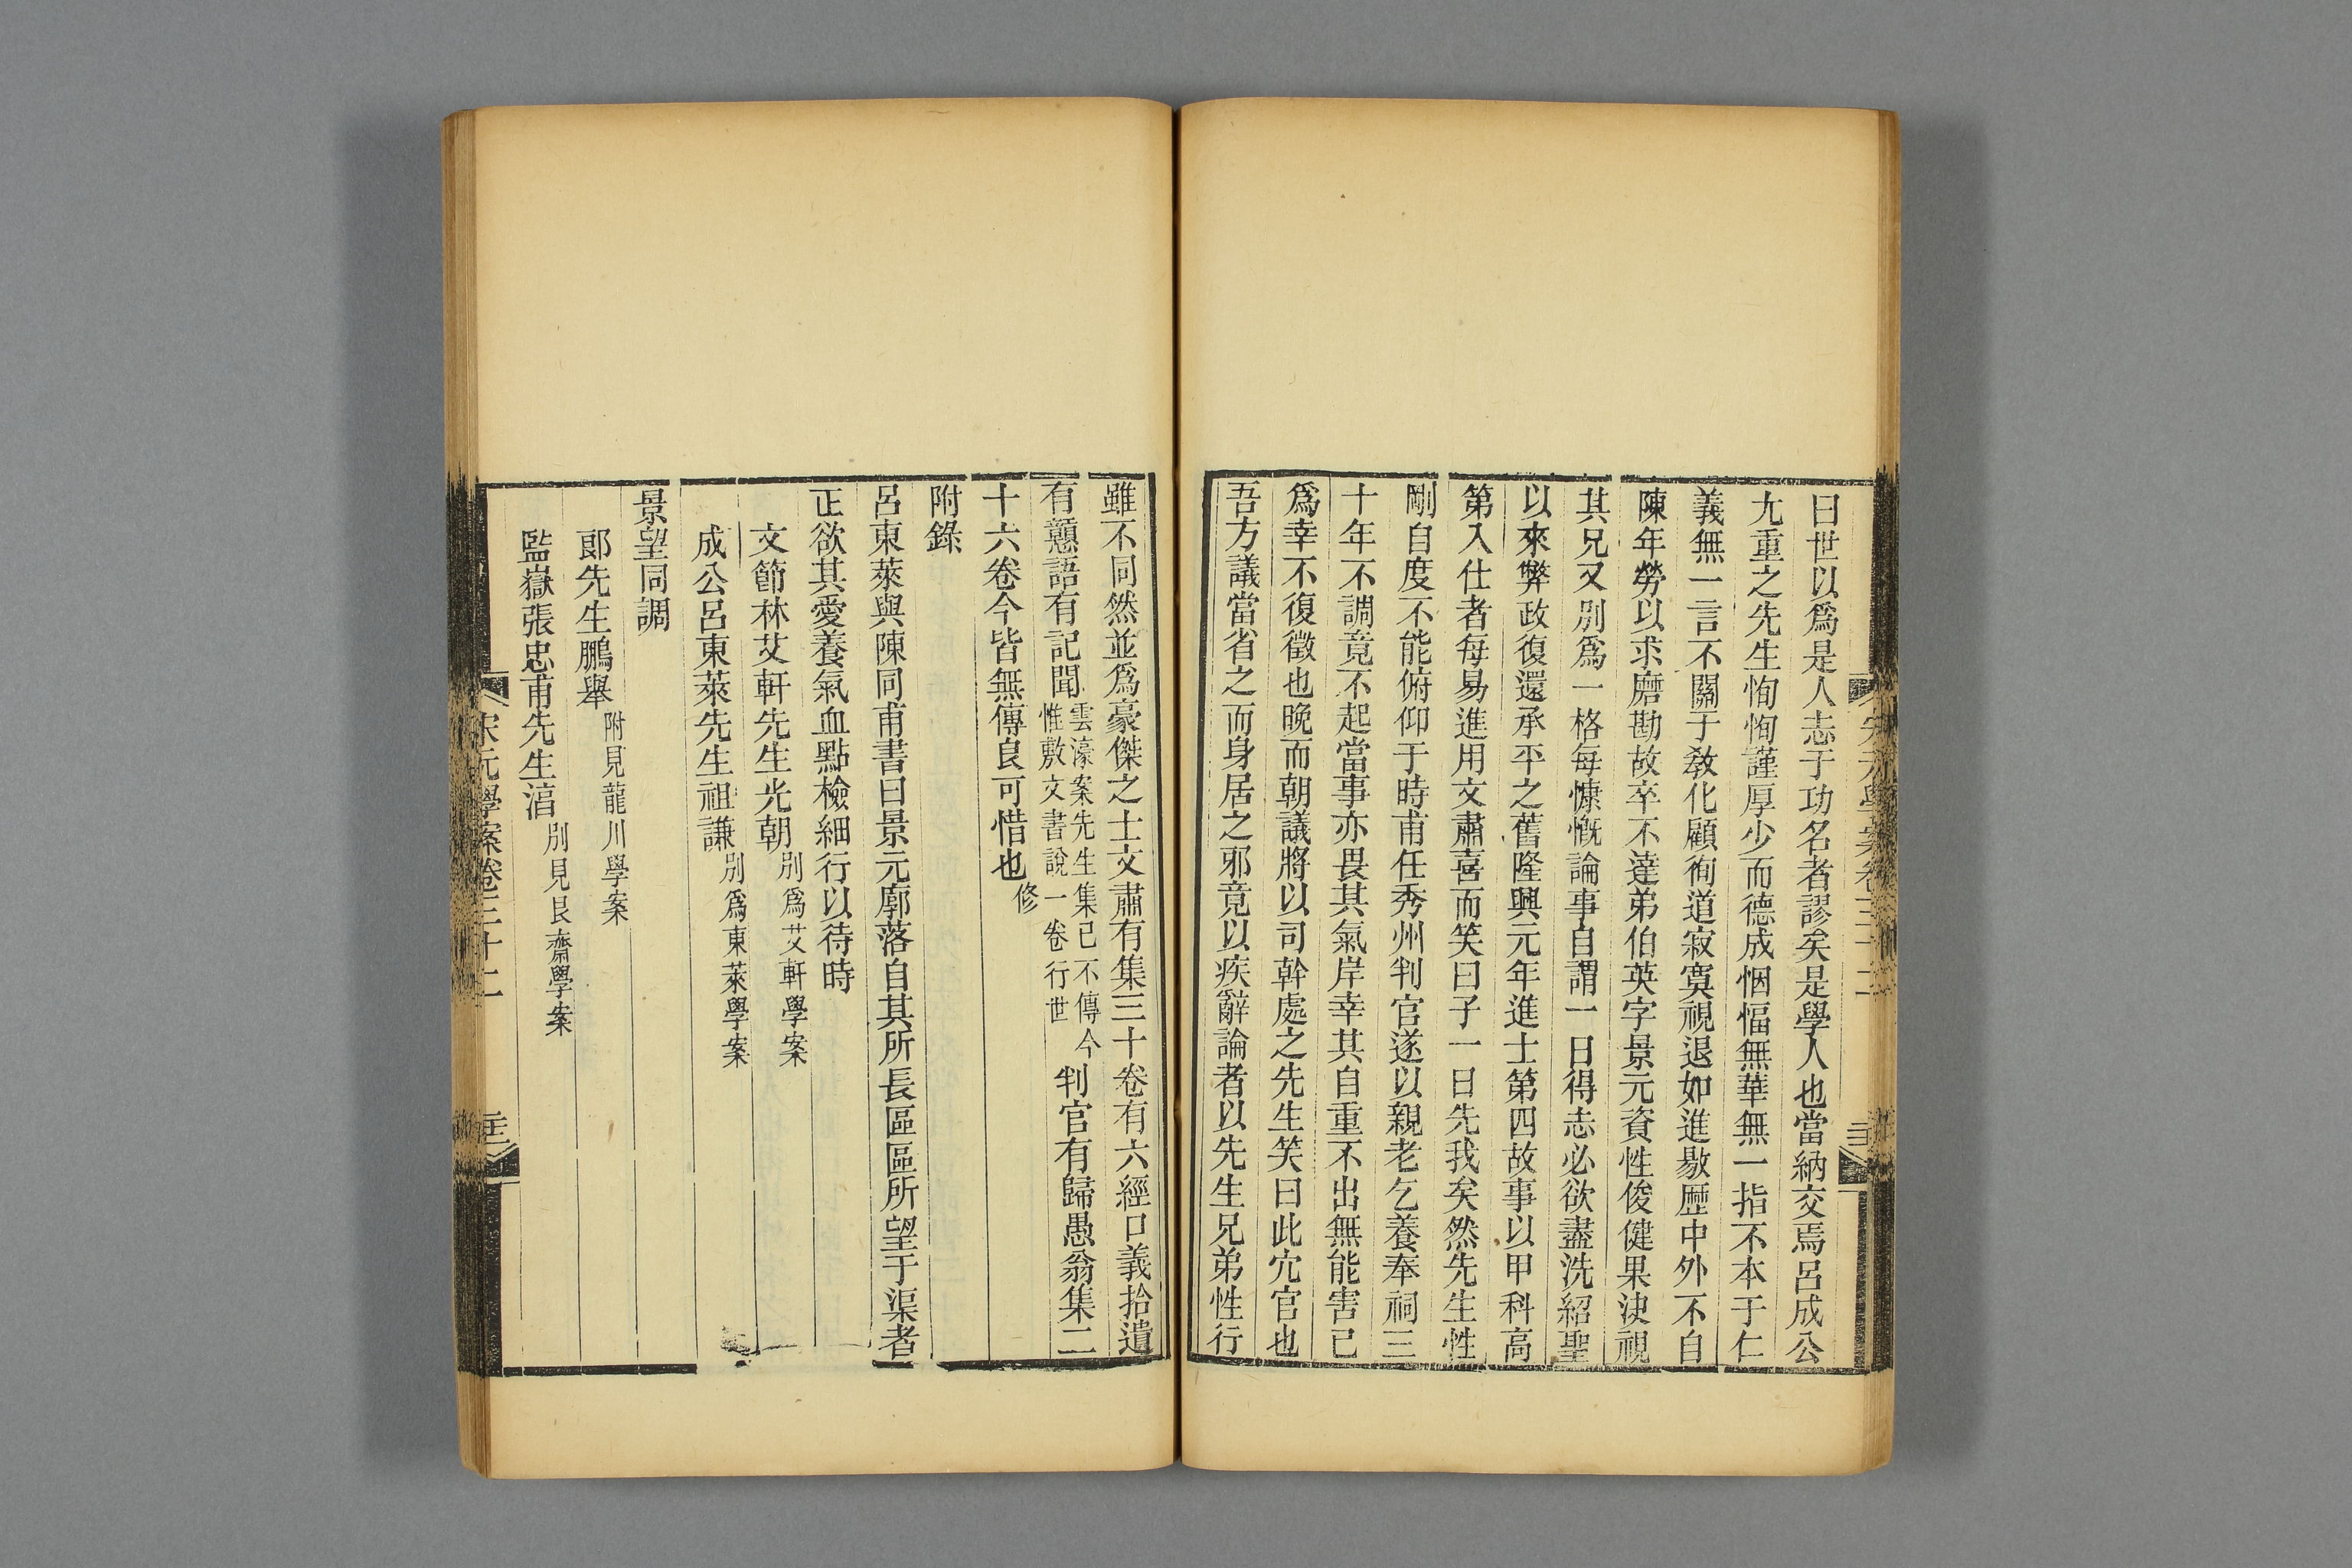 曰世以爲是人志于功名者謬矣是學人也當納交焉呂成公
尢重之先生恂恂謹厚少而德成悃愊無華無一指不本于仁
義無一言不關于敎化顧徇道寂寞視退如進敭歷中外不自
陳年勞以求磨勘故卒不達弟伯英字景元資性俊健果決視
其兄又別爲一格每慷慨論事自謂一日得志必欲盡洗紹聖
以來弊政復還承平之舊隆興元年進士第四故事以甲科高
第入仕者每易進用文肅喜而笑曰子一日先我矣然先生性
剛自度不能俯仰于時甫任秀州判官遂以親老乞養奉祠三
十年不調竟不起當事亦畏其氣岸幸其自重不出無能害已
爲幸不復徵也晚而朝議將以司幹處之先生笑曰此宂官也
吾方議當省之而身居之邪竟以疾辭論者以先生兄弟性行
雖不同然並爲豪傑之士文肅有集三十卷有六經口義拾遺
有戇語有記聞雲濠案先生集已不傳今惟敷文書說一卷行世判官有歸愚翁集二
十六卷今皆無傳良可惜也修
附錄
呂東萊與陳同甫書曰景元廓落自其所長區區所望于渠者
正欲其愛養氣血點檢細行以待時
文節林艾軒先生光朝別爲艾軒學案
成公呂東萊先生祖謙別爲東萊學案
景望同調
郞先生鵬舉附見龍川學案
監嶽張忠甫先生湻別見艮齋學案
宋元學案卷三十二